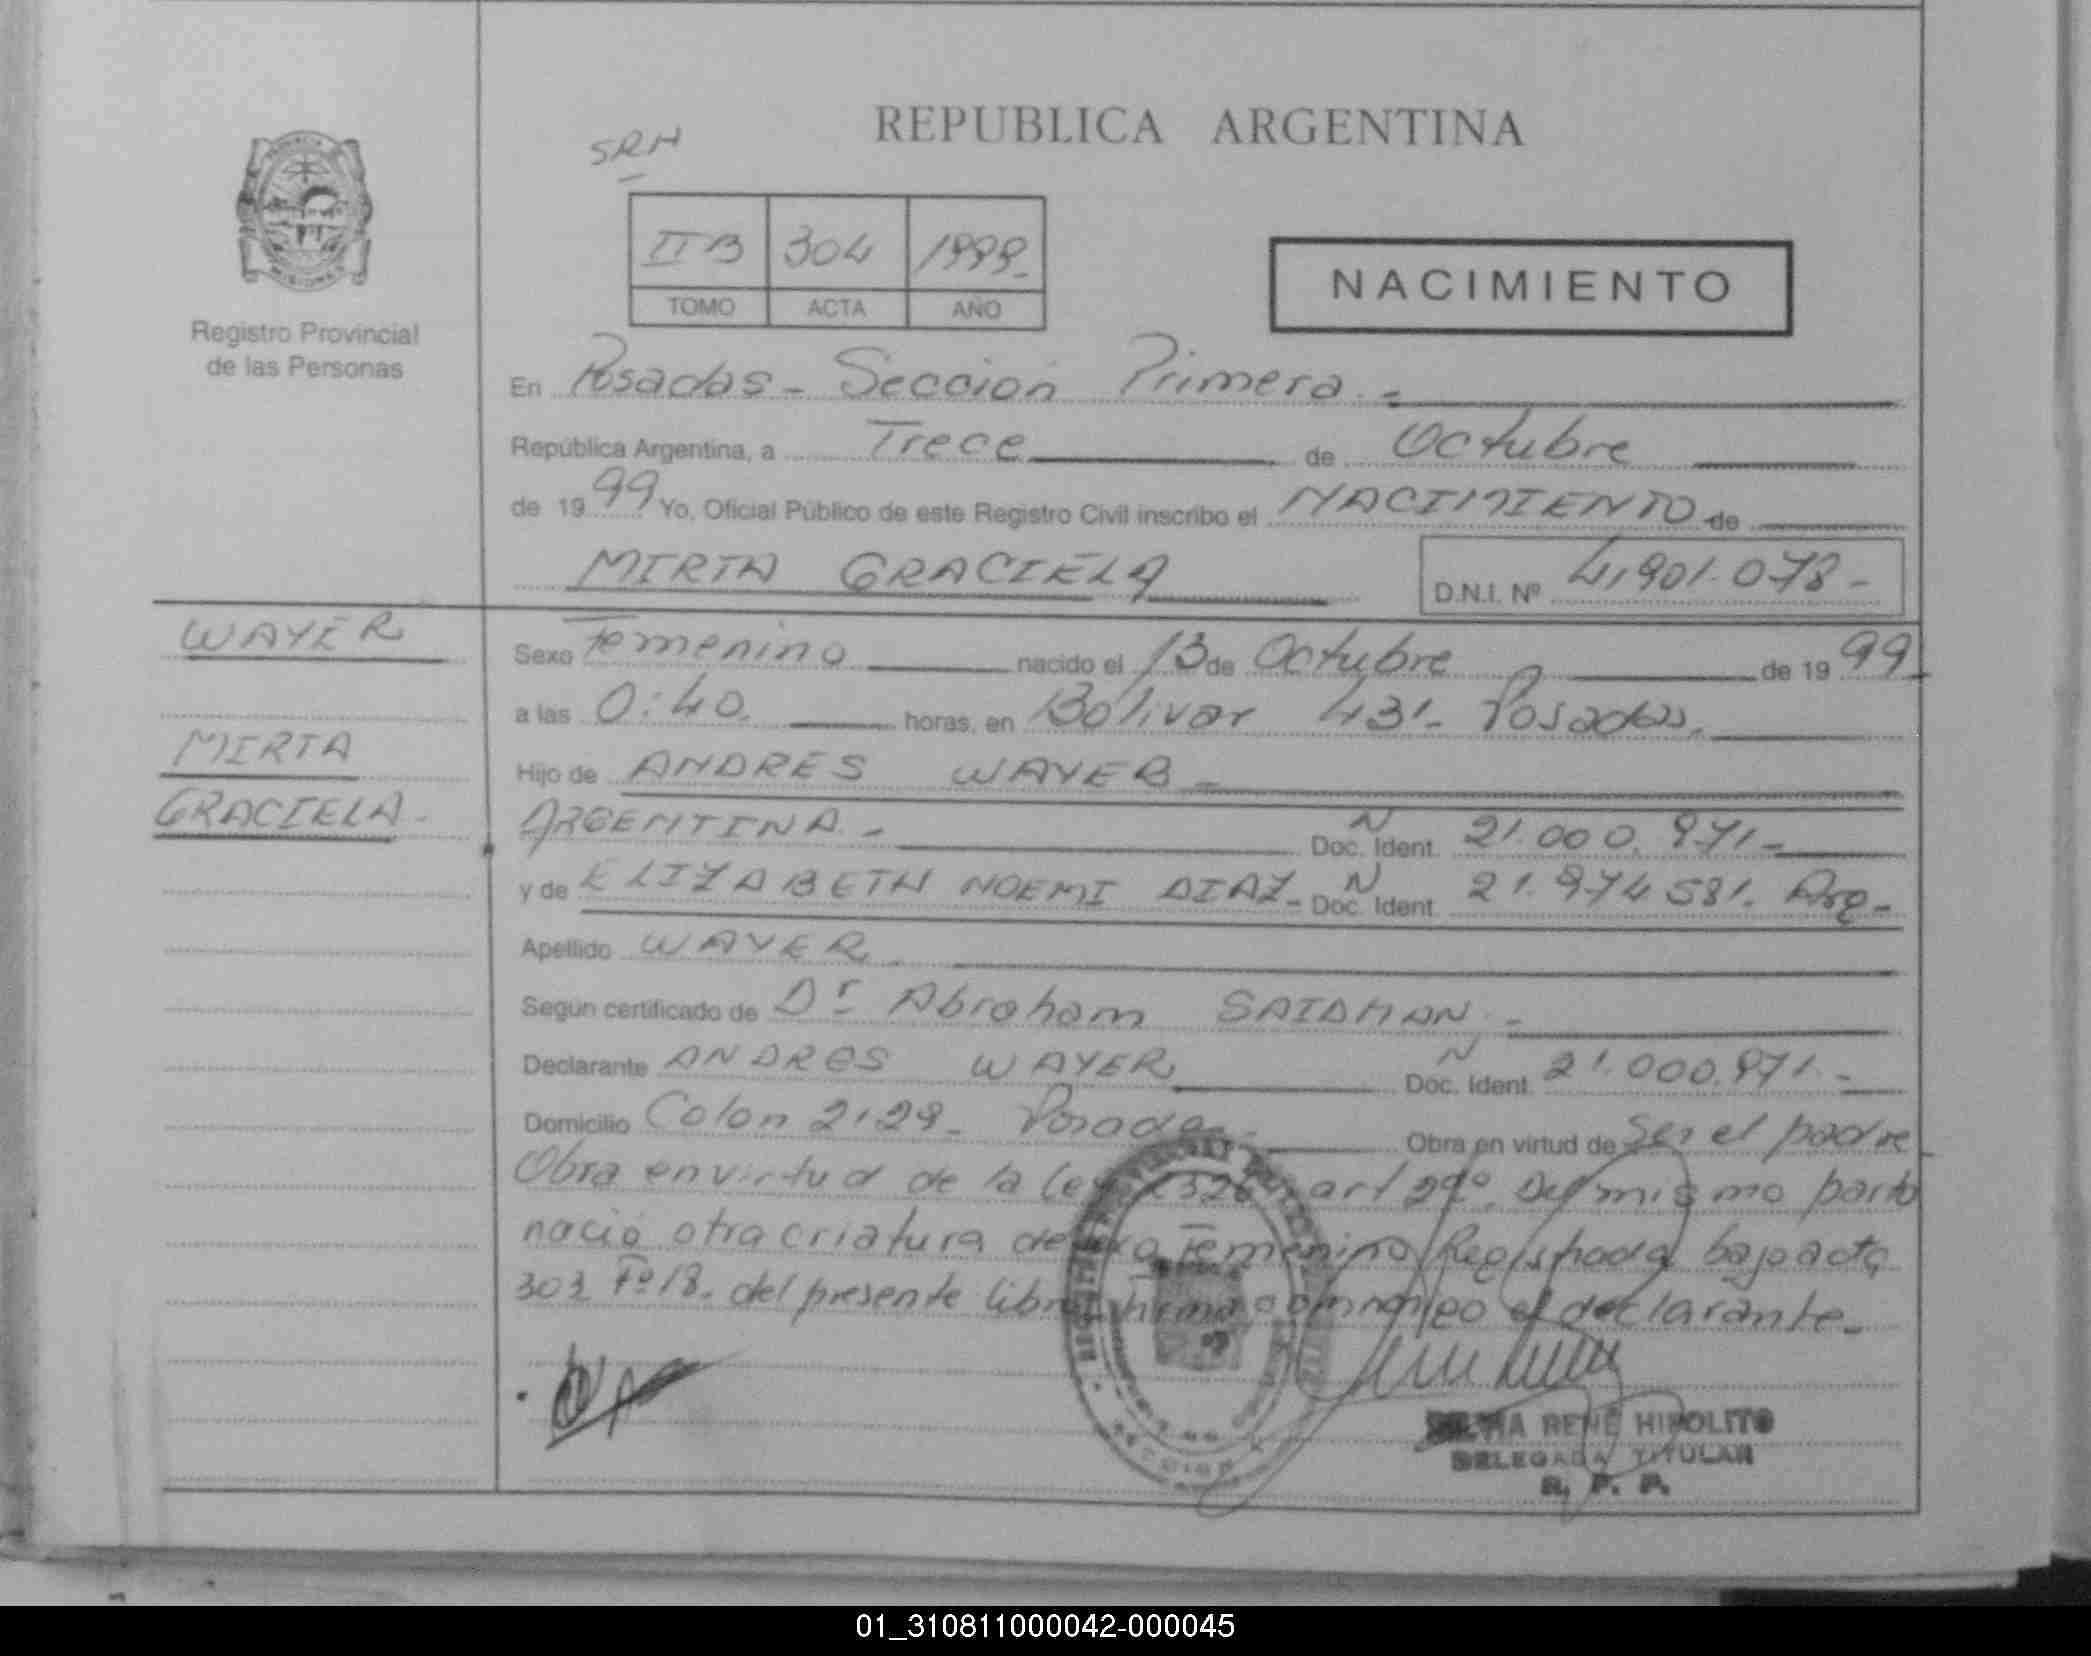 REPUBLICA ARGENTINA
SRH
IIB 304 1999-
TOMO ACTA AÑO
NACIMIENTO
Registro Provincial
de las Personas
En Posadas - Sección Primera.-
República Argentina, a Trece de Octubre
de 1999 Yo, Oficial Público de este Registro Civil inscribo el NACIMIENTO de
MIRTA GRACIELA
D.N.I. Nº 41,901.078-
WAYER
MIRTA
GRACIELA-
Sexo Femenino nacido el 13 de Octubre de 1999
a las 0:40. horas, en Bolivar 431- Posadas.
Hijo de ANDRES WAYER-
ARGENTINA.- N Doc. Ident. 21.000.971-
y de ELIZABETH NOEMI DIAZ- N Doc. Ident. 21.974581. Arg-
Apellido WAYER.
Según certificado de Dr Abraham SAIDMAN.-
Declarante ANDRES WAYER N Doc. Ident. 21.000.971.-
Domicilio Colon 2129- Posadas- Obra en virtud de Ser el padre
Obra en virtud de la Ley art 29º. Del mismo parto
nació otra criatura de sexo Femenino Registrada bajo acta
303 Fº 18. del presente libro. firma conmigo el declarante-
RENE HIPOLITO
DELEGADA TITULAR
R. P. P.
01_310811000042-000045